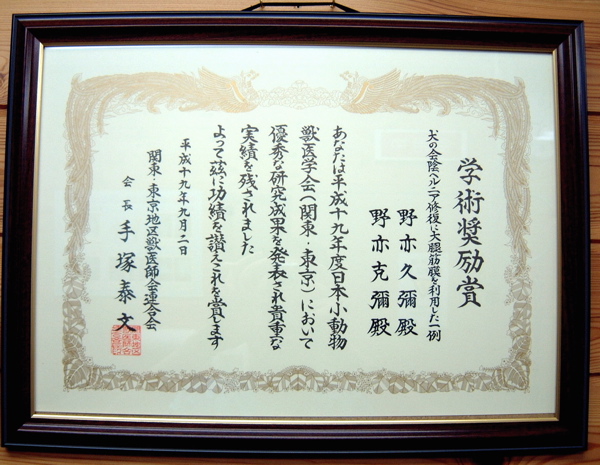 学術奨励賞
犬の会陰ヘルニア修復に大腿筋膜を利用した一例
野亦久彌殿
野亦克彌殿
あなたは平成十九年度日本小動物
獣医学会(関東・東京)において
優秀な研究成果を発表され貴重な
実績を残されました
よって茲に功績を讃えこれを賞します
平成十九年九月二日
関東・東京地区獣医師会連合会
会長 手塚泰文